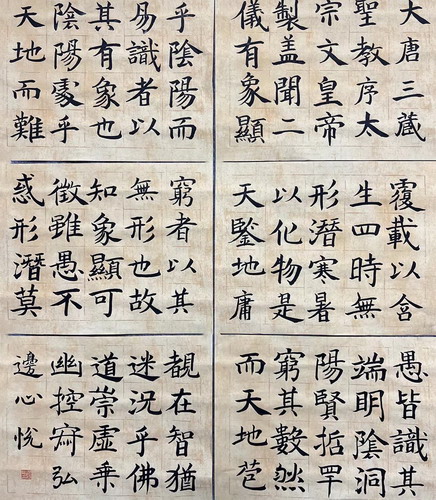 大唐三蔵
聖教序太
宗文皇帝
製盖聞二
儀有象顯
覆載以含
生四時無
形潛寒暑
以化物是
天鑒地庸
愚皆識其
端明陰洞
陽賢哲罕
窮其數然
而天地苞
乎陰陽而
易識者以
其有象也
陰陽處乎
天地而難
窮者以其
無形也故
知象顯可
徵雖愚不
惑形潛莫
覩在智猶
迷況乎佛
道崇虛乗
幽控寂弘
邊心悅